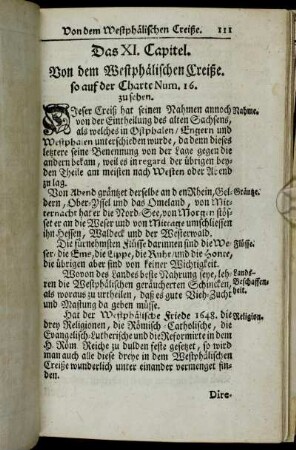 Von dem Westphälischen Creiße. 111
Das XI. Capitel.
Von dem Westphälischen Creiße.
so auf der Charte Num. 16.
zu sehen.
DIeser Creiß hat seinen Nahmen annoch Nahme.
von der Eintheilung des alten Sachsens,
als welches in Ostphalen, Engern und
Westphalen unterschieden wurde, da denn dieses
letztere seine Benennung von der Lage gegen die
andern bekam, weil es in regard der übrigen bey-
den Theile am meisten nach Westen oder Abend
zu lag.
Von Abend gräntzet derselbe an den Rhein, Gel- Gräntze.
dern, Ober-Yssel und das Omeland, von Mit-
ternacht hat er die Nord-See, von Morgen stös-
set er an die Weser und von Mittage umschliessen
ihn Hessen, Waldeck und der Westerwald.
Die fürnehmsten Flüsse darinnen sind die We- Flüsse.
ser, die Ems, die Lippe, die Ruhr und die Honte,
die übrigen aber sind von keiner Wichtigkeit.
Wovon des Landes beste Nahrung seye, leh- Lands-
ren die Westphälischen geräucherten Schincken, Beschaffen-
als woraus zu urtheilen, daß es gute Vieh-Zucht heit.
und Mastung da geben müsse.
Hat der Westphälische Friede 1648. die Religion.
drey Religionen, die Römisch-Catholische, die
Evangelisch-Lutherische und die Reformirte in dem
H. Röm. Reiche zu dulden feste gesetzt, so wird
man auch alle diese dreye in dem Westphälischen
Creiße wunderlich unter einander vermenget fin-
den.
Dire-